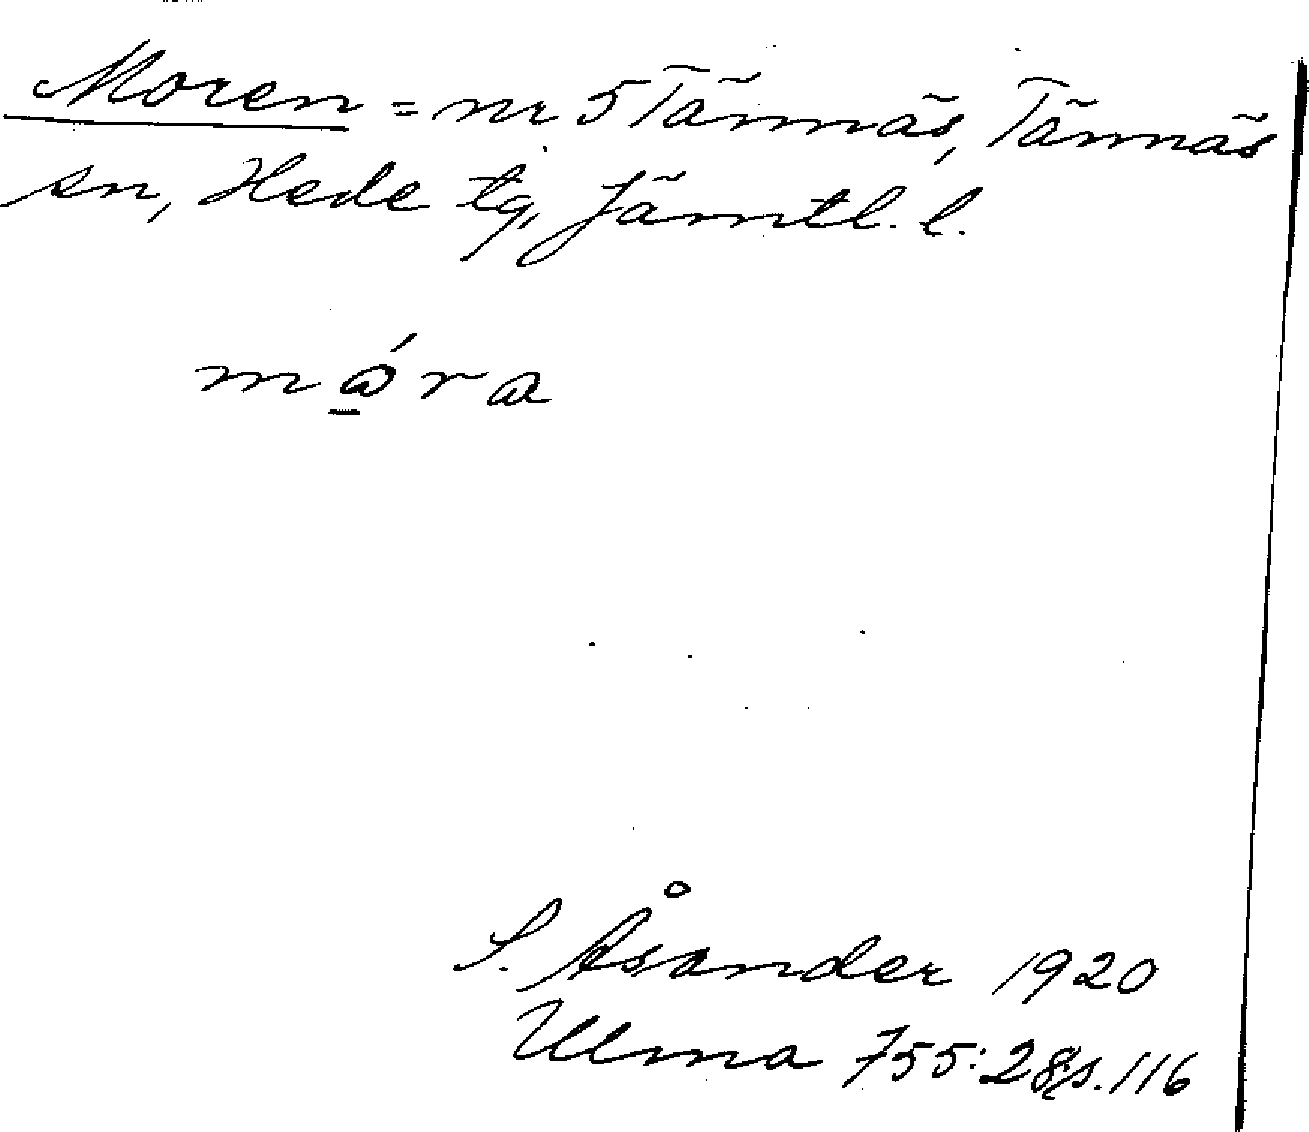 Moren = nr 5 Tännäs, Tännäs
sn, Hede tg, Jämtl. l.
mǻ̱ra
S. Åsander 1920
Ulma 755:28, s. 116